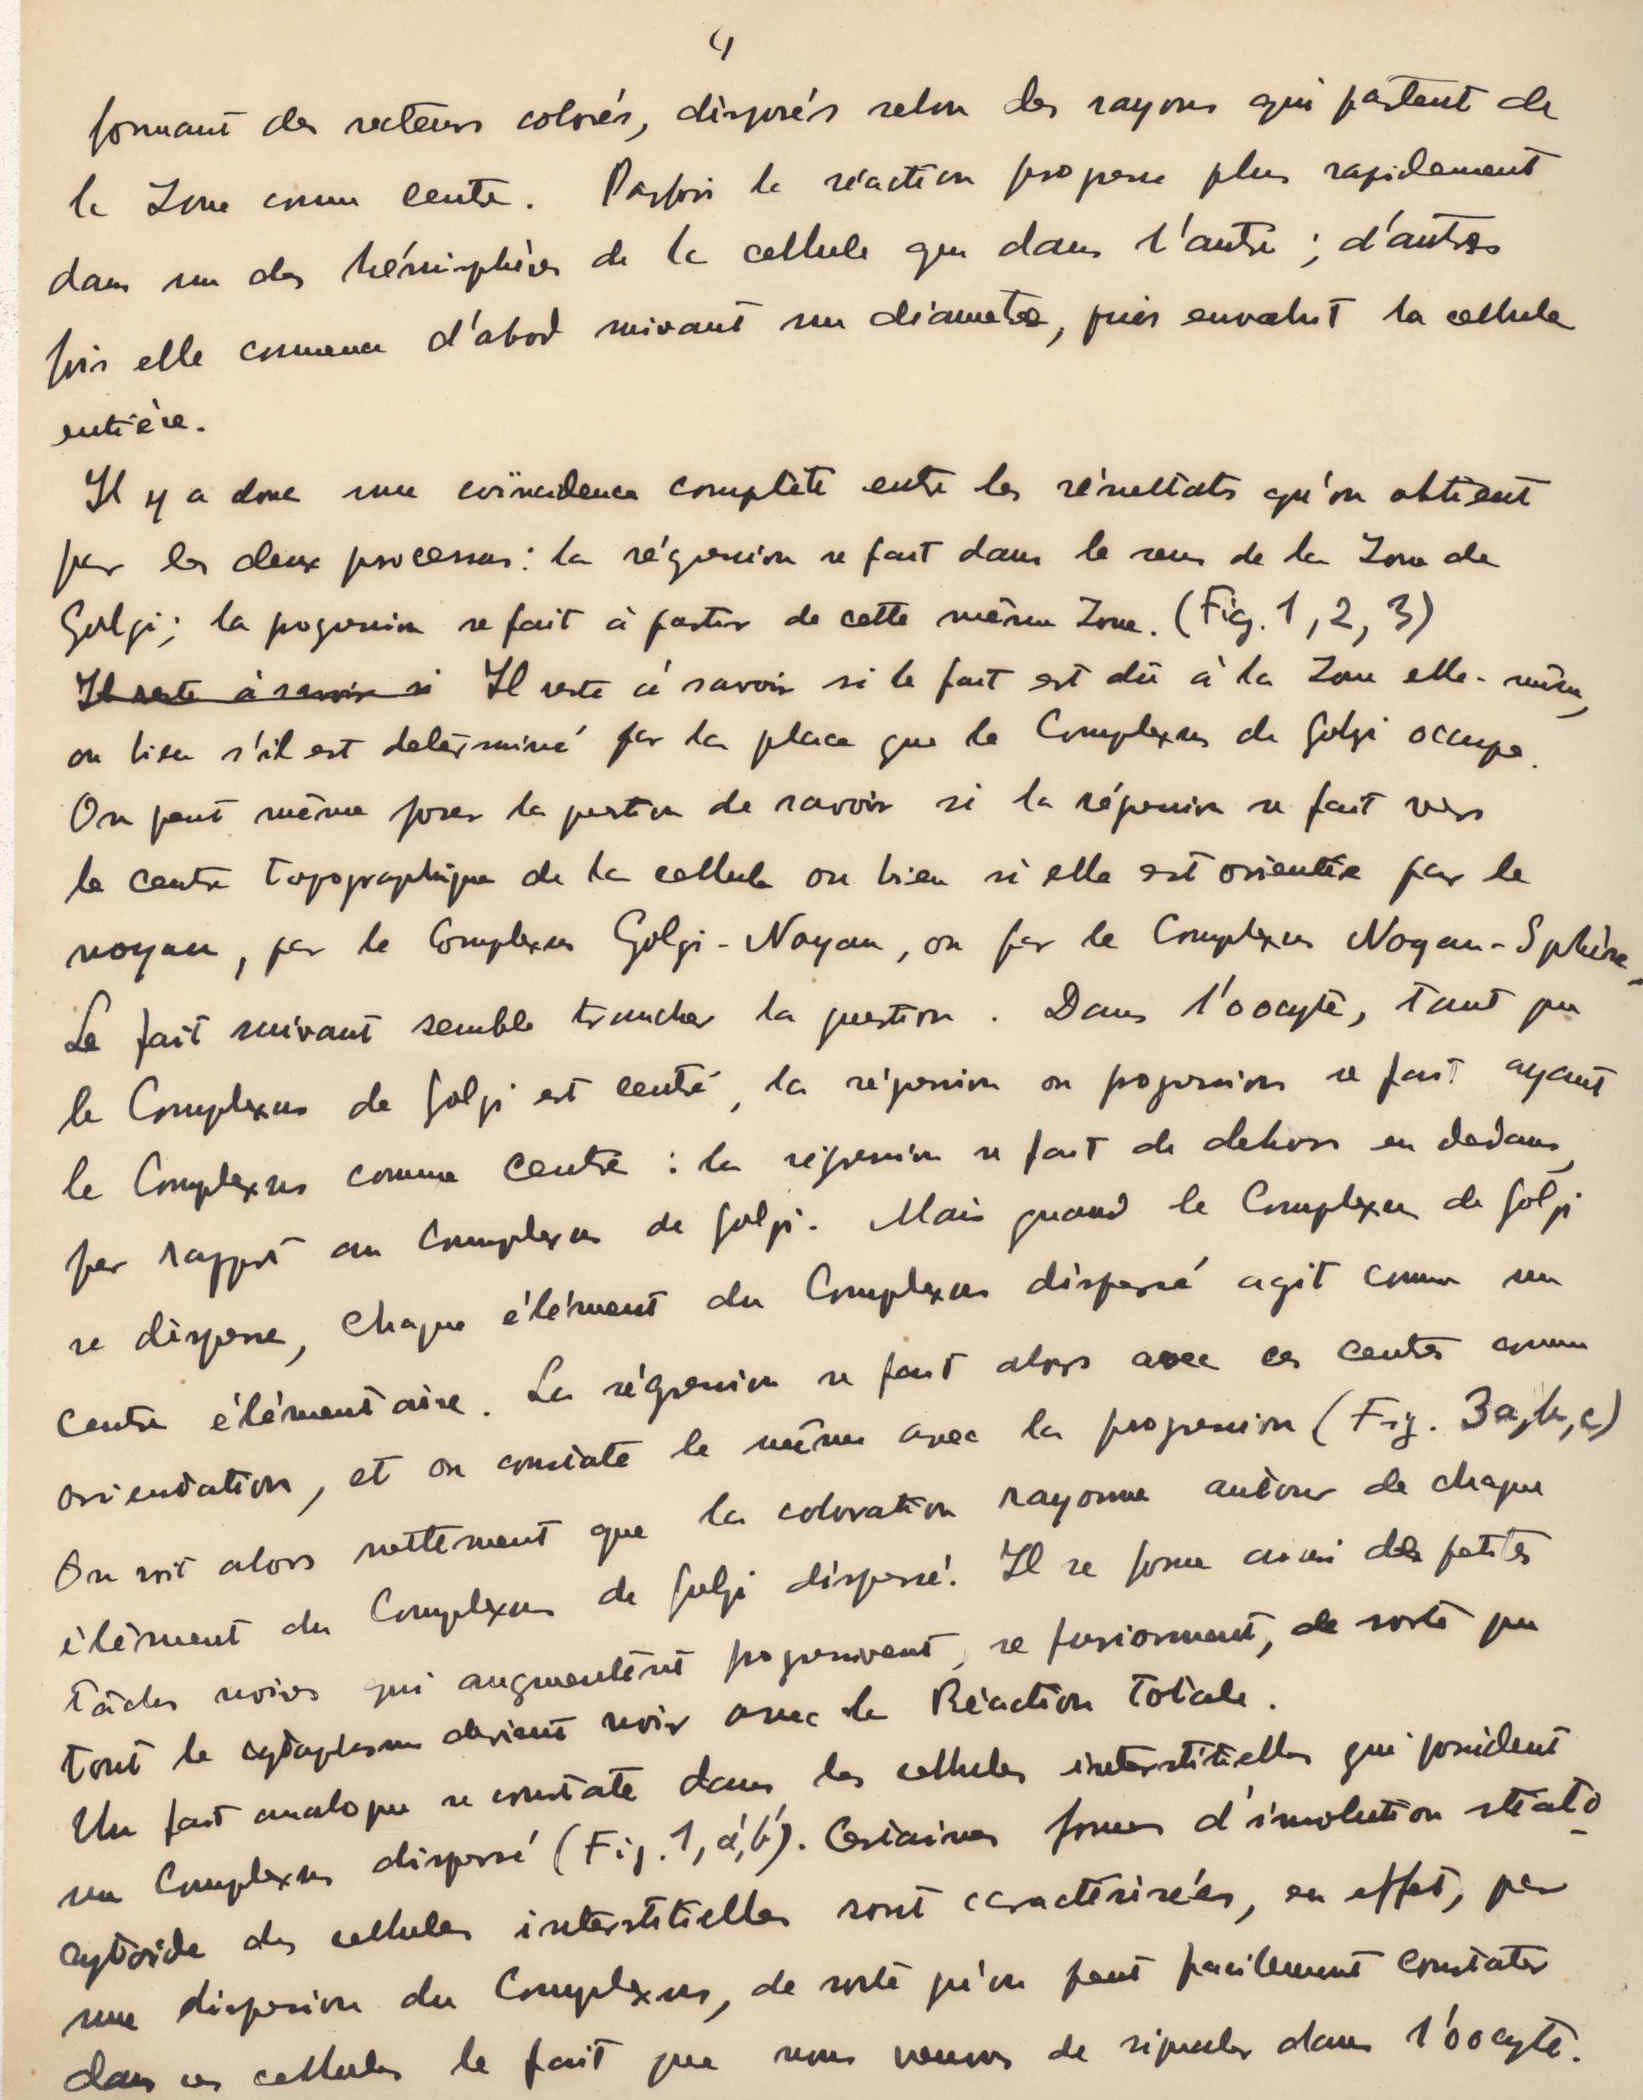 4
formant des secteurs colorés, disposés selon des rayons qui partent de
la Zone comme centre. Parfois la réaction progresse plus rapidement
dans un des hémisphères de la cellule que dans l'autre ; d'autres
fois elle commence d'abord suivant un diametre, puis envahit la cellule
entière.
Il y a donc une coïncidence complète entre les résultats qu'on obtient
par les deux processus : la régression se fait dans le sens de la Zone de
Golgi ; la progression se fait à partir de cette même Zone. (Fig. 1, 2, 3)
Il reste à savoir si Il reste à savoir si le fait est dû à la Zone elle-même,
ou bien s'il est déterminé par la place que le Complexus de Golgi occupe.
On peut même poser la question de savoir si la régression se fait vers
le centre topographique de la cellule ou bien si elle est orientée par le
noyau, par le Complexus Golgi-Noyau, ou par le Complexus Noyau-Sphère.
Le fait suivant semble trancher la question. Dans l'oocyte, tant que
le Complexus de Golgi est centré, la régression ou progression se fait ayant
le Complexus comme centre : la régression se fait de dehors en dedans,
par rapport au Complexus de Golgi. Mais quand le Complexus de Golgi
se disperse, chaque élément du Complexus dispersé agit comme un
centre élémentaire. La régression se fait alors avec ces centres comme
orientation, et on constate le même avec la progression (Fig. 3a, b, c)
On voit alors nettement que la coloration rayonne autour de chaque
élément du Complexus de Golgi dispersé. Il se forme ainsi des petites
tâches noires qui augmentent progressivent, se fusionnent, de sorte que
tout le cytoplasme devient noir avec la Réaction totale.
Un fait analogue se constate dans les cellules interstitielles qui possèdent
un Complexus dispersé (Fig. 1, a', b'). Certaines formes d'involution stéato-
cytoïde des cellules interstitielles sont caractérisées, en effet, par
une dispersion du Complexus, de sorte qu'on peut facilement constater
dans ces cellules le fait que nous venons de signaler dans l'oocyte.